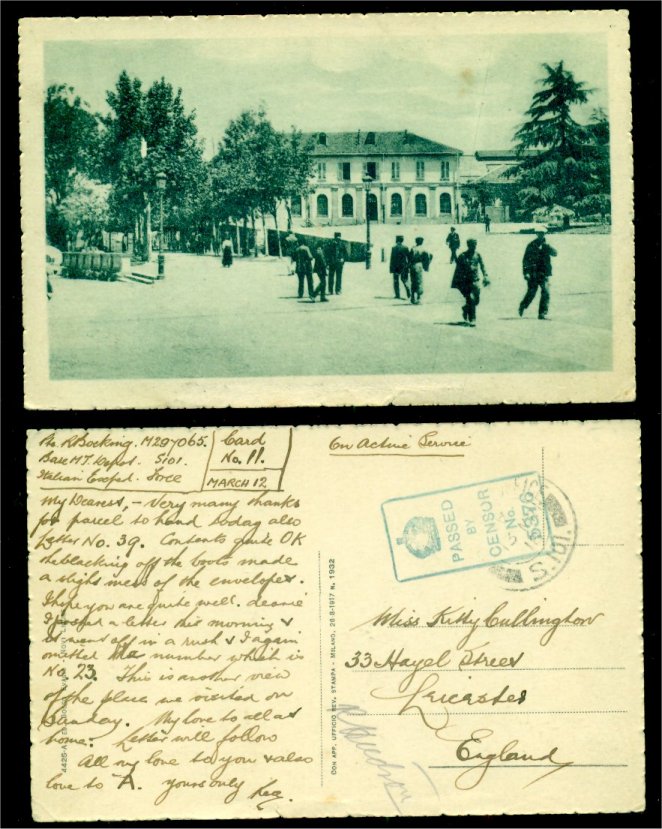 Pte. R Bocking. M297065.
Base M.T. Depot. S101.
Italian Exped. Force
Card
No. 11.
MARCH 12
On Active Service
My Dearest, - Very many thanks
for parcel to hand today also
Letter No. 39. Contents quite OK
the blacking off the boots made
a slight mess of the envelopes.
I hope you are quite well. dearie
I posted a letter this morning &
it went off in a rush & I again
omitted the number which is
No. 23. This is another view
of the place we visited on
Sunday. My love to all at
home. Letter will follow
All my love to you & also
love to A. yours only Reg.
DON APP. UFFICIO REV. STAMPA - MILANO, 26-8-1917 N. 1932
PASSED
BY
CENSOR
No.
S.101.
Miss Kitty Cullington
33 Hazel Street
Leicester
England
R Hudson